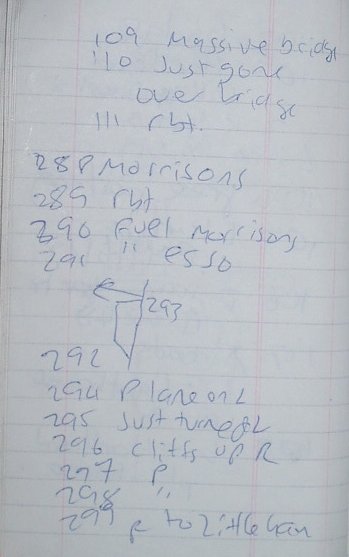 109 Massive bridge
110 Just gone
over bridge
111 rbt.
288 Morrisons
289 rbt
290 Fuel Morrisons
291 " ESSO
293
292
294 Plane on L
295 Just turned L
296 cliffs up R
297 P
298 "
299 R to Little